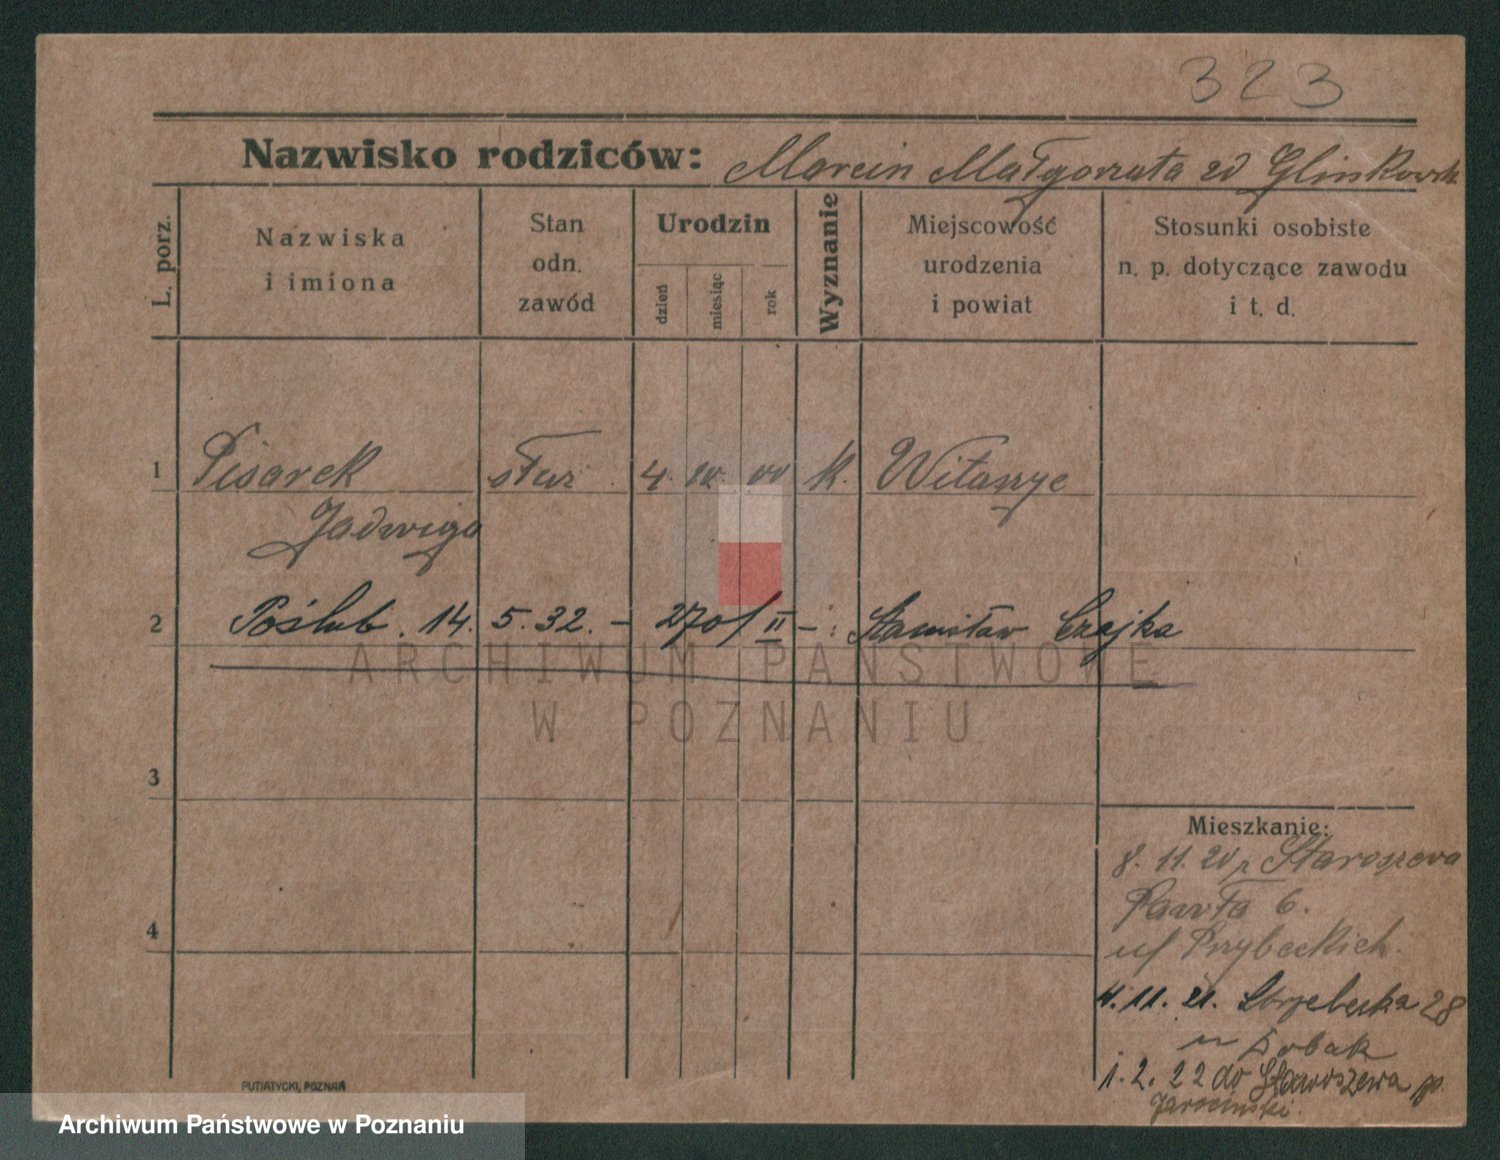 323
Nazwisko rodziców: Marcin Małgorzata zd Glinkowsk
L. porz.
Nazwiska
i imiona
Stan
odn.
zawód
Urodzin
dzień
miesiąc
rok
Wyznanie
Miejscowość
urodzenia
i powiat
Stosunki osobiste
n. p. dotyczące zawodu
i t. d.
1 Pisarek służ 4. 00 k. Witaszyce
Jadwiga
2 Poślub. 14. 5. 32. – 270/II – : Stanisław Czajka
ARCHIWUM PAŃSTWOWE
W POZNANIU
3
Mieszkanie:
8. 11. 20 z
Pawła 6.
u/ Przybeckich.
4
4. 11. 21. 28
1. 2. 22 do Staroszewa p.
Jarociński.
PUTIATYCKI, POZNAŃ
Archiwum Państwowe w Poznaniu